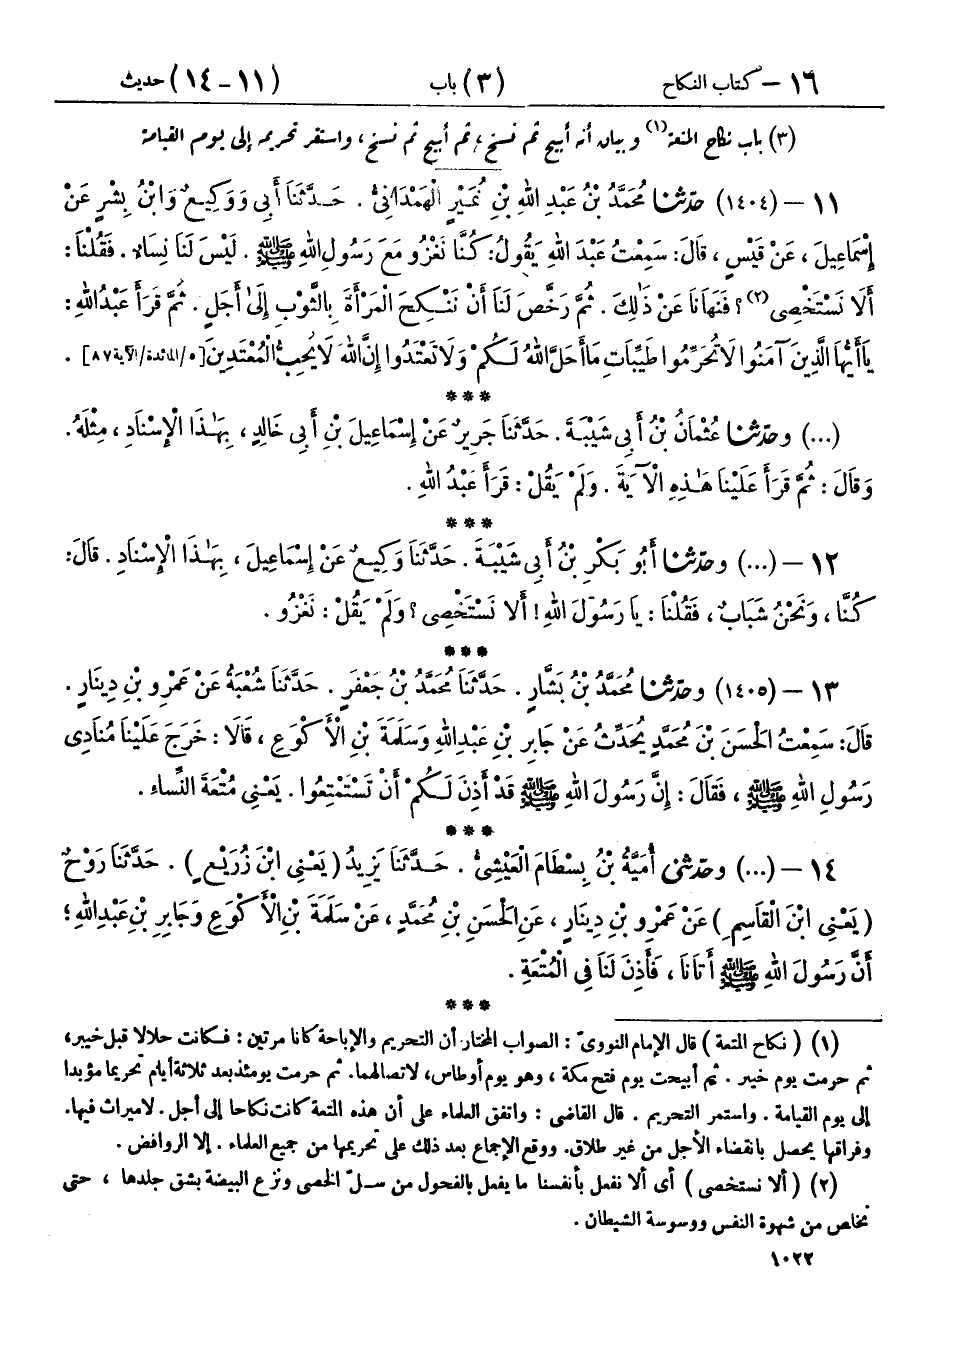 ١٦ – كتاب النكاح (٣) باب (١١ – ١٤) حديث
(٣) باب نكاح المتعة(١) وبيان أنه أبيح ثم نسخ، ثم أبيح ثم نسخ، واستقر تحريمه إلى يوم القيامة
١١ – (١٤٠٤) حدّثنا مُحَمَّدُ بْنُ عَبْدِ اللهِ بْنِ نُمَيْرٍ الْهَمْدَانِيُّ. حَدَّثَنَا أَبِي وَوَكِيعٌ وَابْنُ بِشْرٍ عَنْ
إِسْمَاعِيلَ، عَنْ قَيْسٍ، قَالَ: سَمِعْتُ عَبْدَ اللهِ يَقُولُ: كُنَّا نَغْزُو مَعَ رَسُولِ اللهِ ﷺ. لَيْسَ لَنَا نِسَاءٌ. فَقُلْنَا:
أَلَا نَسْتَخْصِي(٢)؟ فَنَهَانَا عَنْ ذَٰلِكَ. ثُمَّ رَخَّصَ لَنَا أَنْ نَنْكِحَ الْمَرْأَةَ بِالثَّوْبِ إِلَىٰ أَجَلٍ. ثُمَّ قَرَأَ عَبْدُ اللهِ:
يَا أَيُّهَا الَّذِينَ آمَنُوا لَا تُحَرِّمُوا طَيِّبَاتِ مَا أَحَلَّ اللهُ لَكُمْ وَلَا تَعْتَدُوا إِنَّ اللهَ لَا يُحِبُّ الْمُعْتَدِينَ [٥/المائدة/الآية ٨٧].
***
(...) وحدّثنا عُثْمَانُ بْنُ أَبِي شَيْبَةَ. حَدَّثَنَا جَرِيرٌ عَنْ إِسْمَاعِيلَ بْنِ أَبِي خَالِدٍ، بِهَٰذَا الْإِسْنَادِ، مِثْلَهُ.
وَقَالَ: ثُمَّ قَرَأَ عَلَيْنَا هَٰذِهِ الْآيَةَ. وَلَمْ يَقُلْ: قَرَأَ عَبْدُ اللهِ.
***
١٢ – (...) وحدّثنا أَبُو بَكْرِ بْنُ أَبِي شَيْبَةَ. حَدَّثَنَا وَكِيعٌ عَنْ إِسْمَاعِيلَ، بِهَٰذَا الْإِسْنَادِ. قَالَ:
كُنَّا، وَنَحْنُ شَبَابٌ، فَقُلْنَا: يَا رَسُولَ اللهِ! أَلَا نَسْتَخْصِي؟ وَلَمْ يَقُلْ: نَغْزُو.
***
١٣ – (١٤٠٥) وحدّثنا مُحَمَّدُ بْنُ بَشَّارٍ. حَدَّثَنَا مُحَمَّدُ بْنُ جَعْفَرٍ. حَدَّثَنَا شُعْبَةُ عَنْ عَمْرِو بْنِ دِينَارٍ.
قَالَ: سَمِعْتُ الْحَسَنَ بْنَ مُحَمَّدٍ يُحَدِّثُ عَنْ جَابِرِ بْنِ عَبْدِ اللهِ وَسَلَمَةَ بْنِ الْأَكْوَعِ، قَالَا: خَرَجَ عَلَيْنَا مُنَادِي
رَسُولِ اللهِ ﷺ، فَقَالَ: إِنَّ رَسُولَ اللهِ ﷺ قَدْ أَذِنَ لَكُمْ أَنْ تَسْتَمْتِعُوا. يَعْنِي مُتْعَةَ النِّسَاءِ.
***
١٤ – (...) وحدّثنى أُمَيَّةُ بْنُ بِسْطَامَ الْعَيْشِيُّ. حَدَّثَنَا يَزِيدُ (يَعْنِي ابْنَ زُرَيْعٍ). حَدَّثَنَا رَوْحٌ
(يَعْنِي ابْنَ الْقَاسِمِ) عَنْ عَمْرِو بْنِ دِينَارٍ، عَنِ الْحَسَنِ بْنِ مُحَمَّدٍ، عَنْ سَلَمَةَ بْنِ الْأَكْوَعِ وَجَابِرِ بْنِ عَبْدِ اللهِ؛
أَنَّ رَسُولَ اللهِ ﷺ أَتَانَا، فَأَذِنَ لَنَا فِي الْمُتْعَةِ.
***
(١) (نكاح المتعة) قال الإمام النووىّ: الصواب المختار أن التحريم والإباحة كانا مرتين: فكانت حلالا قبل خيبر،
ثم حرمت يوم خيبر. ثم أبيحت يوم فتح مكة، وهو يوم أوطاس، لاتصالهما. ثم حرمت يومئذ بعد ثلاثة أيام تحريما مؤبدا
إلى يوم القيامة. واستمر التحريم. قال القاضى: واتفق العلماء على أن هذه المتعة كانت نكاحا إلى أجل. لا ميراث فيها.
وفراقها يحصل بانقضاء الأجل من غير طلاق. ووقع الإجماع بعد ذلك على تحريمها من جميع العلماء. إلا الروافض.
(٢) (ألا نستخصى) أى ألا نفعل بأنفسنا ما يفعل بالفحول من سلّ الخصى ونزع البيضة بشق جلدها، حتى
نخلص من شهوة النفس ووسوسة الشيطان.
١٠٢٢